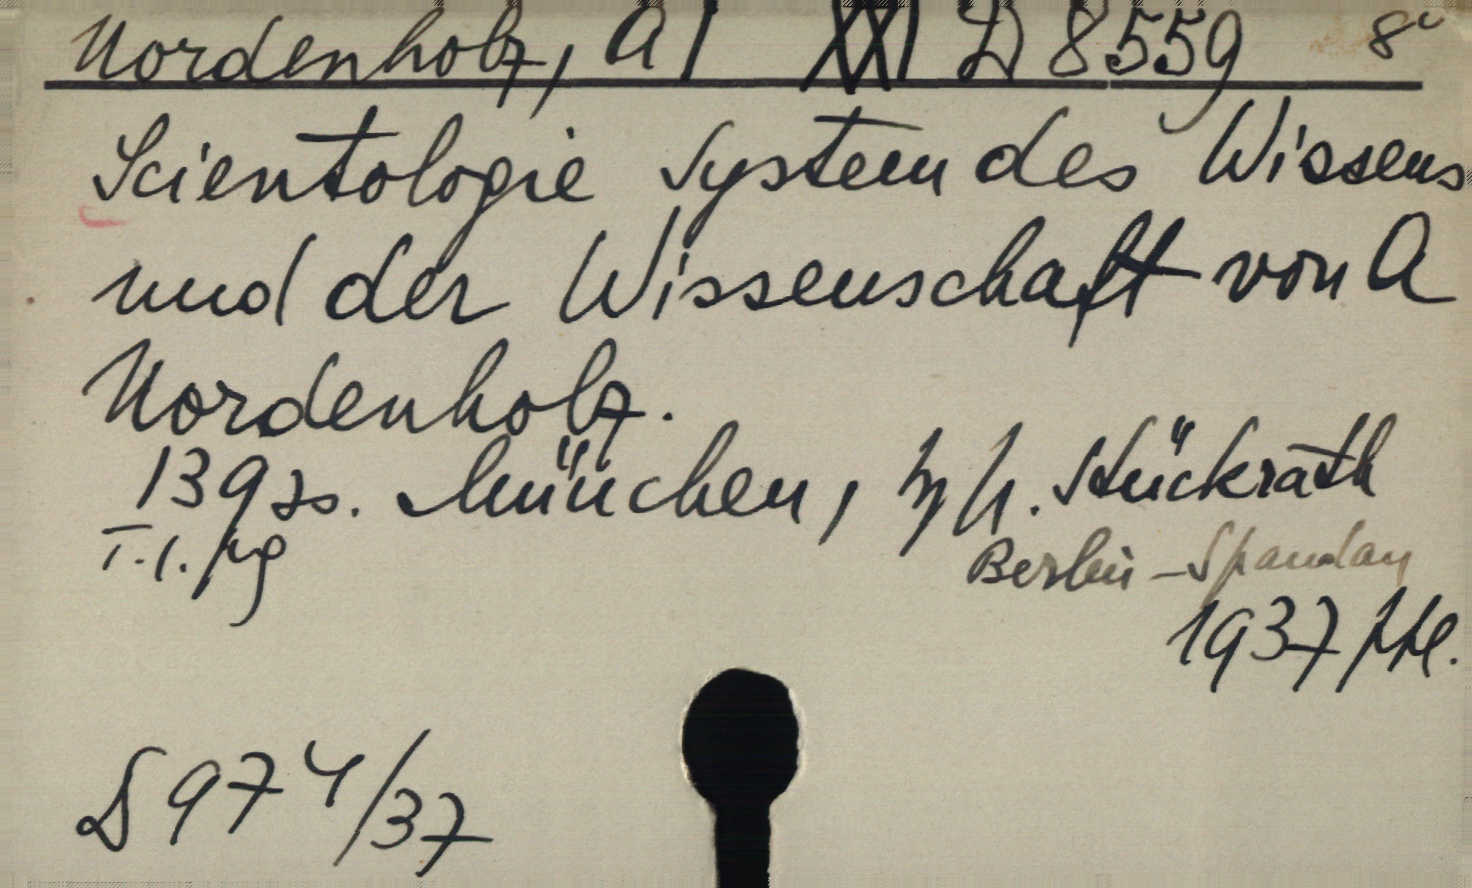 Nordenholz, A / XXI D 8559 8°
Scientologie System des Wissens
und der Wissenschaft von A
Nordenholz.
139 S. München, H. Stückrath
Berlin-Spandau
1937
D 974/37